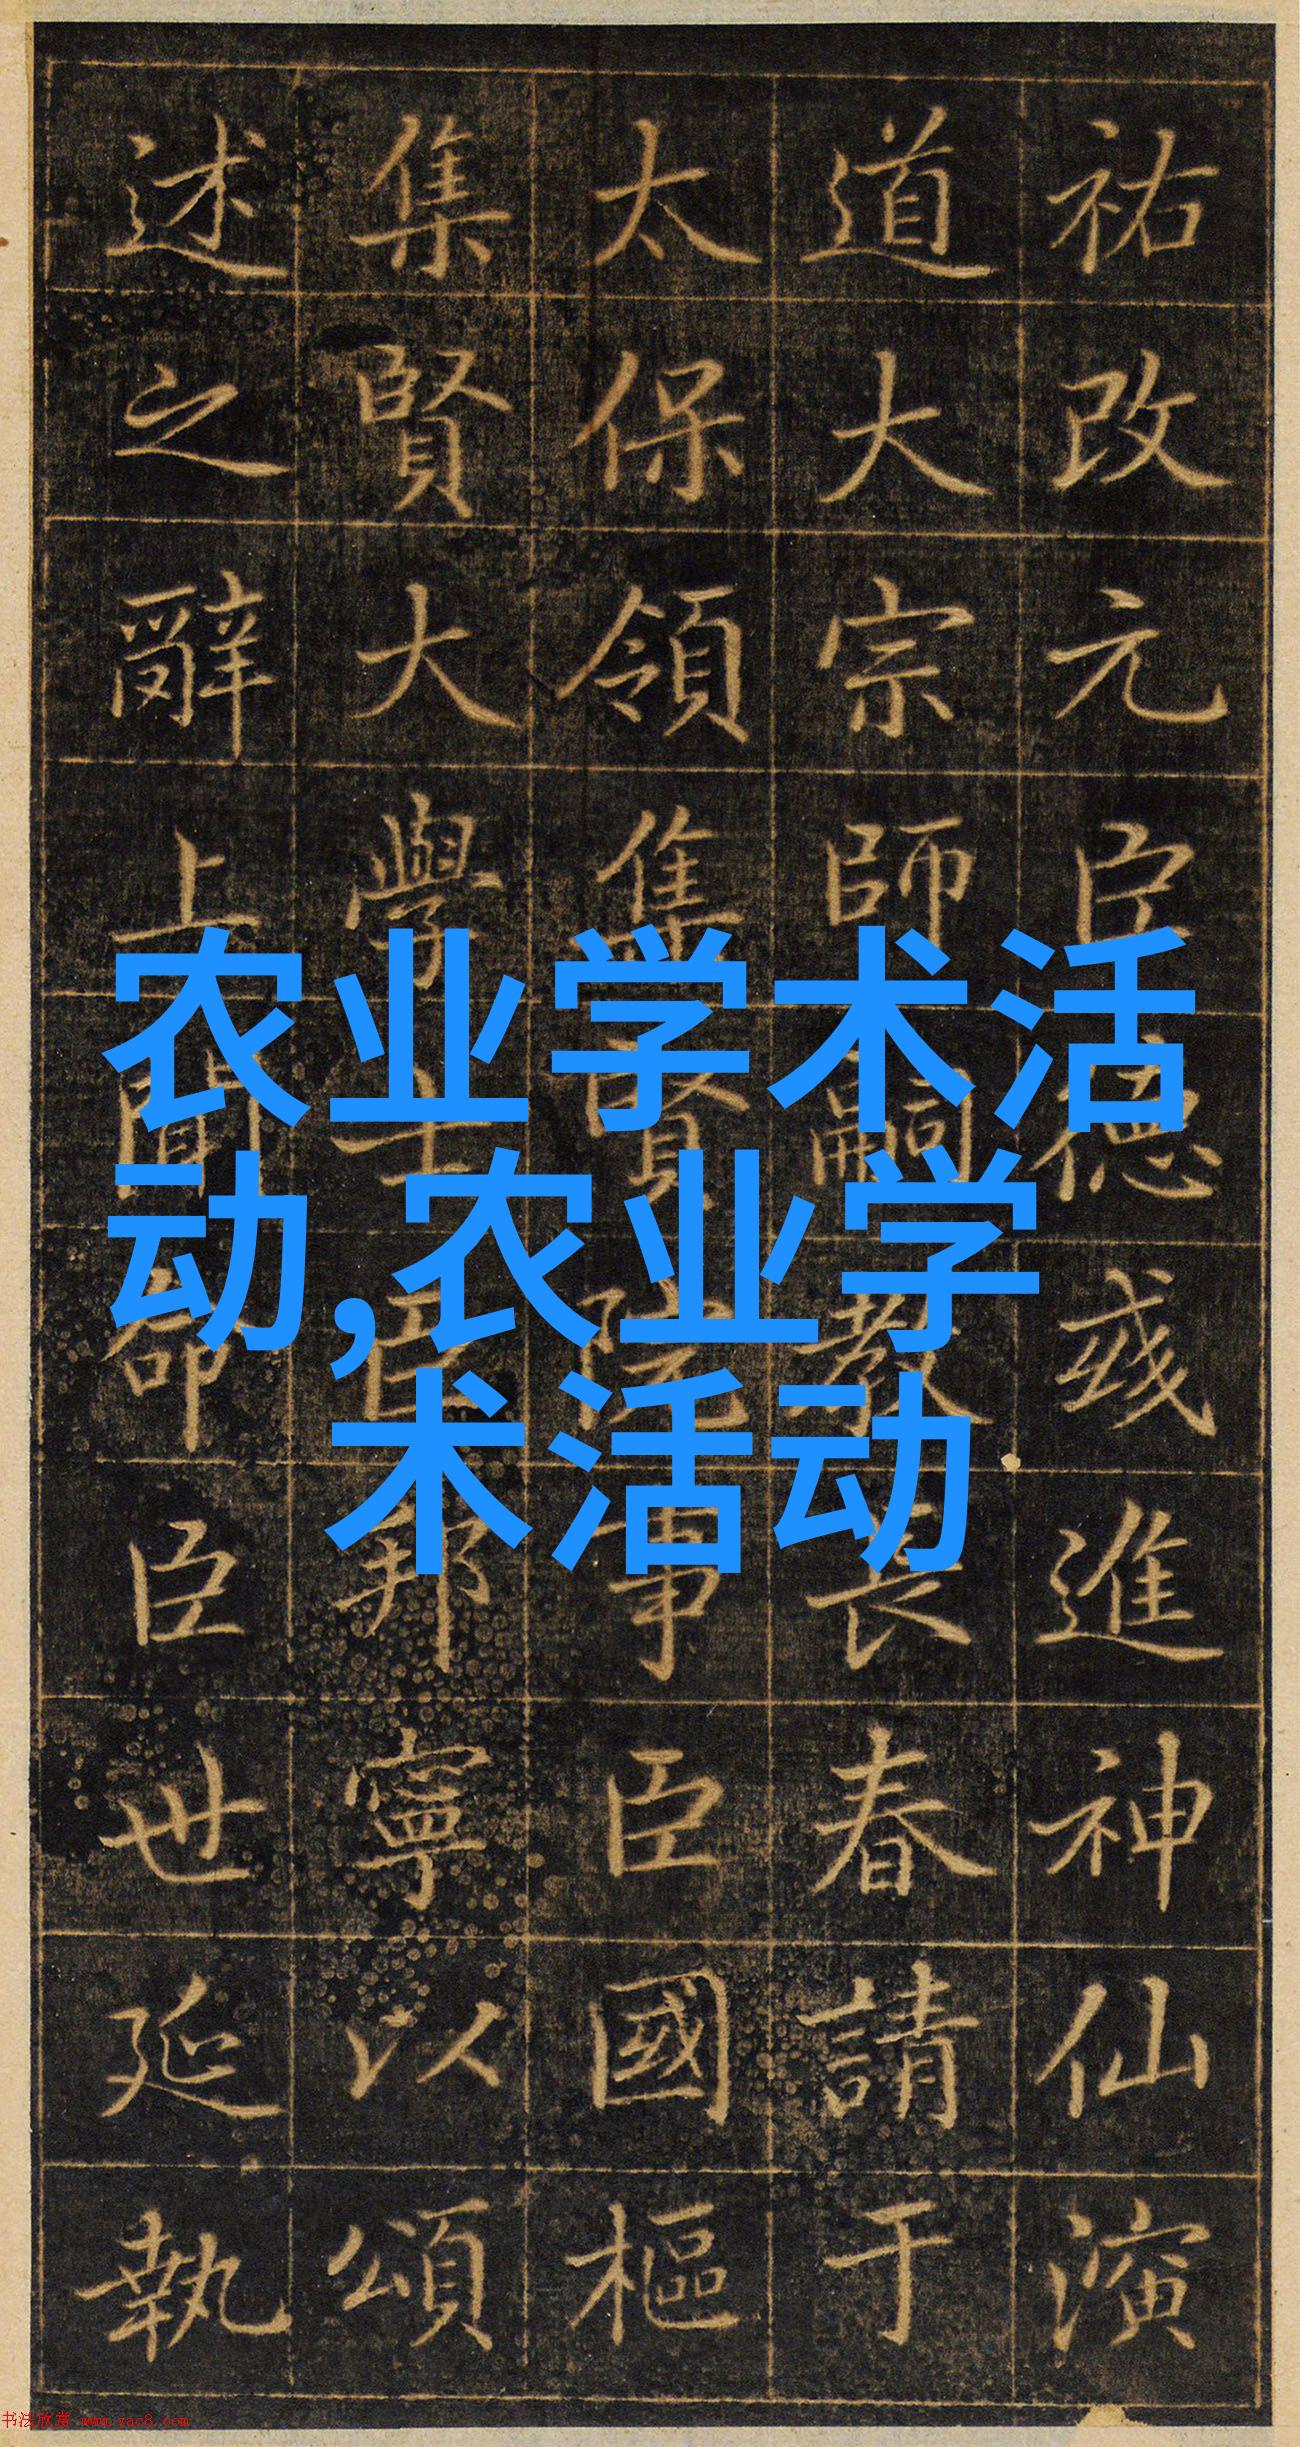 祐改元臣德彧進神仙演
道大宗師嗣教長春請于
太保領集賢院事臣國樞
集賢大學士臣邦寧以頌
述之辭上聞命臣世延執
农业学术活
动,农业学
术活动
书法欣赏 www.yac8.com